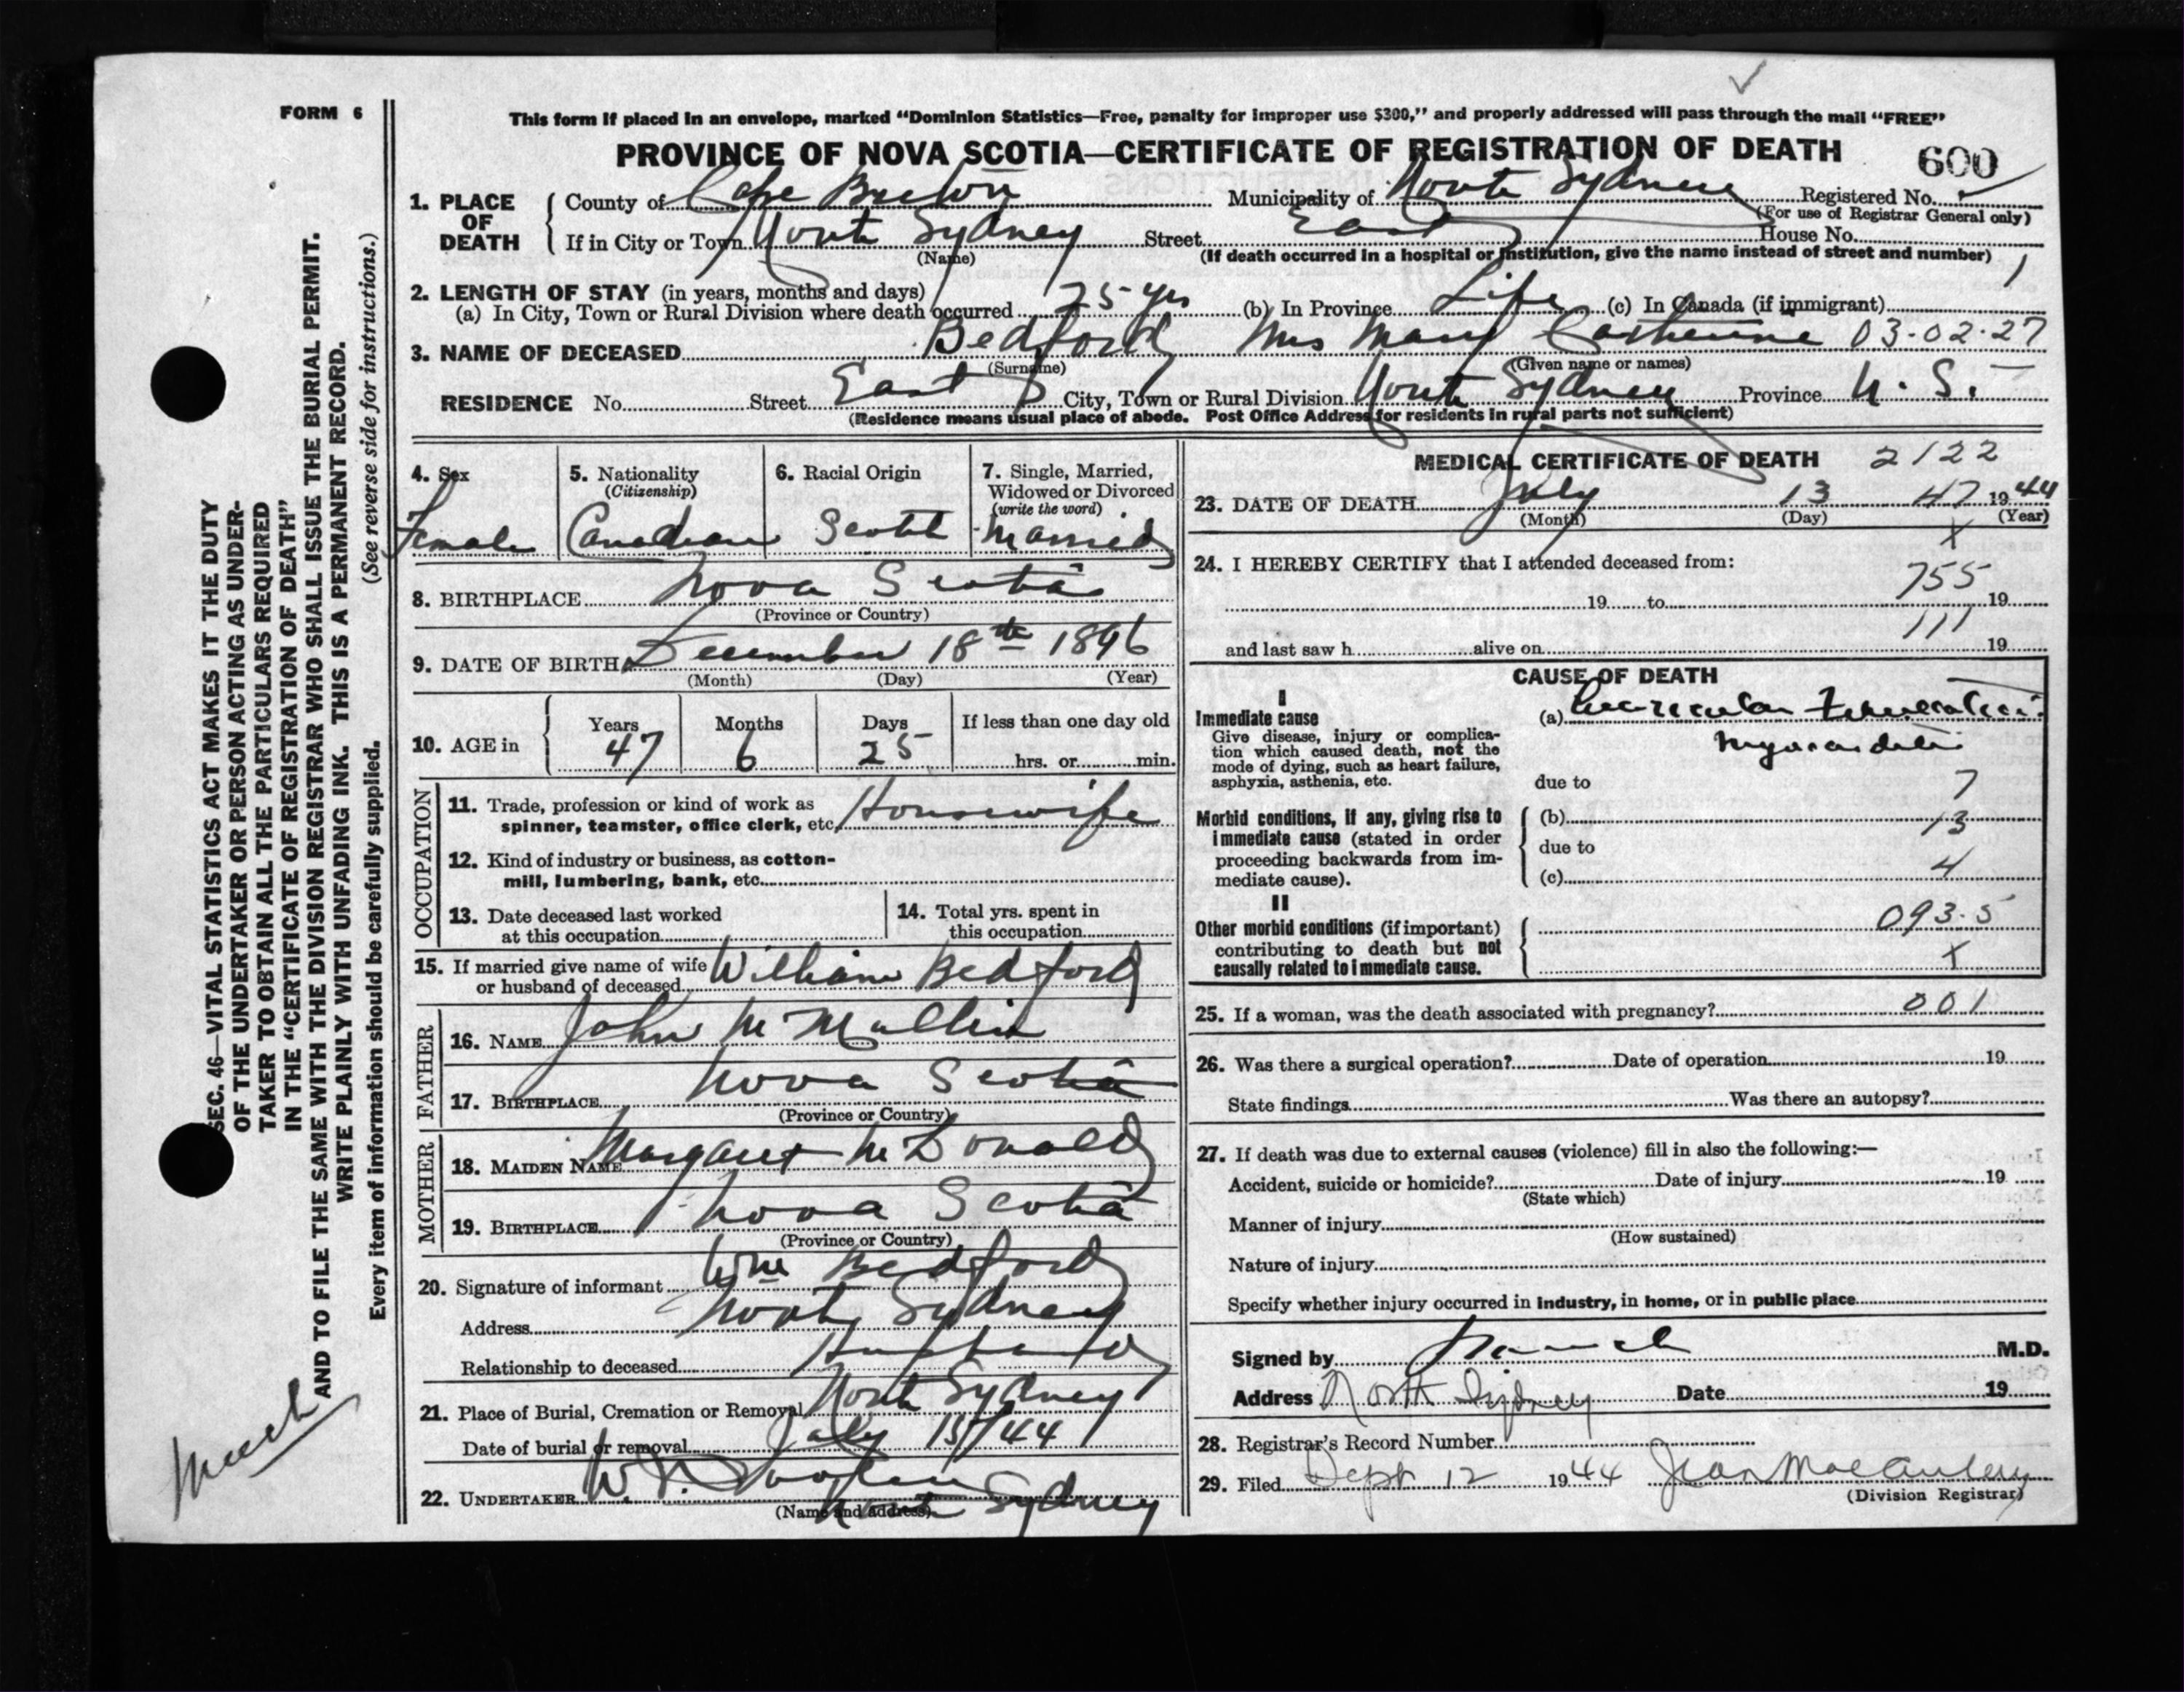 FORM 6
This form if placed in an envelope, marked "Dominion Statistics—Free, penalty for improper use $300," and properly addressed will pass through the mail "FREE"
PROVINCE OF NOVA SCOTIA—CERTIFICATE OF REGISTRATION OF DEATH 600
1. PLACE OF DEATH County of Cape Breton Municipality of North Sydney Registered No.
(For use of Registrar General only)
If in City or Town North Sydney Street East House No.
(Name) (If death occurred in a hospital or institution, give the name instead of street and number) 1
2. LENGTH OF STAY (in years, months and days)
(a) In City, Town or Rural Division where death occurred 25 yrs (b) In Province Life (c) In Canada (if immigrant)
3. NAME OF DECEASED Bedford Mrs Mary Catherine 03-02-27
(Surname) (Given name or names)
RESIDENCE No. Street East City, Town or Rural Division North Sydney Province N. S.
(Residence means usual place of abode. Post Office Address for residents in rural parts not sufficient)
4. Sex Female
5. Nationality (Citizenship) Canadian
6. Racial Origin Scotch
7. Single, Married, Widowed or Divorced (write the word) Married
8. BIRTHPLACE Nova Scotia
(Province or Country)
9. DATE OF BIRTH December 18th 1896
(Month) (Day) (Year)
10. AGE in Years 47 Months 6 Days 25 If less than one day old hrs. or min.
OCCUPATION
11. Trade, profession or kind of work as spinner, teamster, office clerk, etc. Housewife
12. Kind of industry or business, as cotton-mill, lumbering, bank, etc.
13. Date deceased last worked at this occupation
14. Total yrs. spent in this occupation
15. If married give name of wife or husband of deceased William Bedford
FATHER
16. NAME John McMullin
17. BIRTHPLACE Nova Scotia
(Province or Country)
MOTHER
18. MAIDEN NAME Margaret McDonald
19. BIRTHPLACE Nova Scotia
(Province or Country)
20. Signature of informant Wm Bedford
Address North Sydney
Relationship to deceased Husband
21. Place of Burial, Cremation or Removal North Sydney
Date of burial or removal July 15/44
22. UNDERTAKER W. J.
(Name and address) North Sydney
MEDICAL CERTIFICATE OF DEATH 2122
23. DATE OF DEATH July 13 47 1944
(Month) (Day) (Year)
X
24. I HEREBY CERTIFY that I attended deceased from:
755
19 to 19
111
and last saw h alive on 19
CAUSE OF DEATH
I
Immediate cause
Give disease, injury or complication which caused death, not the mode of dying, such as heart failure, asphyxia, asthenia, etc.
(a) Auricular
Myocarditis
due to 7
Morbid conditions, if any, giving rise to immediate cause (stated in order proceeding backwards from immediate cause).
(b) 13
due to
(c) 4
II
Other morbid conditions (if important) contributing to death but not causally related to immediate cause.
093.5
X
25. If a woman, was the death associated with pregnancy? 001
26. Was there a surgical operation? Date of operation 19
State findings Was there an autopsy?
27. If death was due to external causes (violence) fill in also the following:—
Accident, suicide or homicide? Date of injury 19
(State which)
Manner of injury
(How sustained)
Nature of injury
Specify whether injury occurred in industry, in home, or in public place
Signed by M.D.
Address North Sydney Date 19
28. Registrar's Record Number
29. Filed Sept 12 1944 Jean MacAuley
(Division Registrar)
SEC. 46—VITAL STATISTICS ACT MAKES IT THE DUTY
OF THE UNDERTAKER OR PERSON ACTING AS UNDER-
TAKER TO OBTAIN ALL THE PARTICULARS REQUIRED
IN THE "CERTIFICATE OF REGISTRATION OF DEATH"
AND TO FILE THE SAME WITH THE DIVISION REGISTRAR WHO SHALL ISSUE THE BURIAL PERMIT.
WRITE PLAINLY WITH UNFADING INK. THIS IS A PERMANENT RECORD.
Every item of information should be carefully supplied. (See reverse side for instructions.)